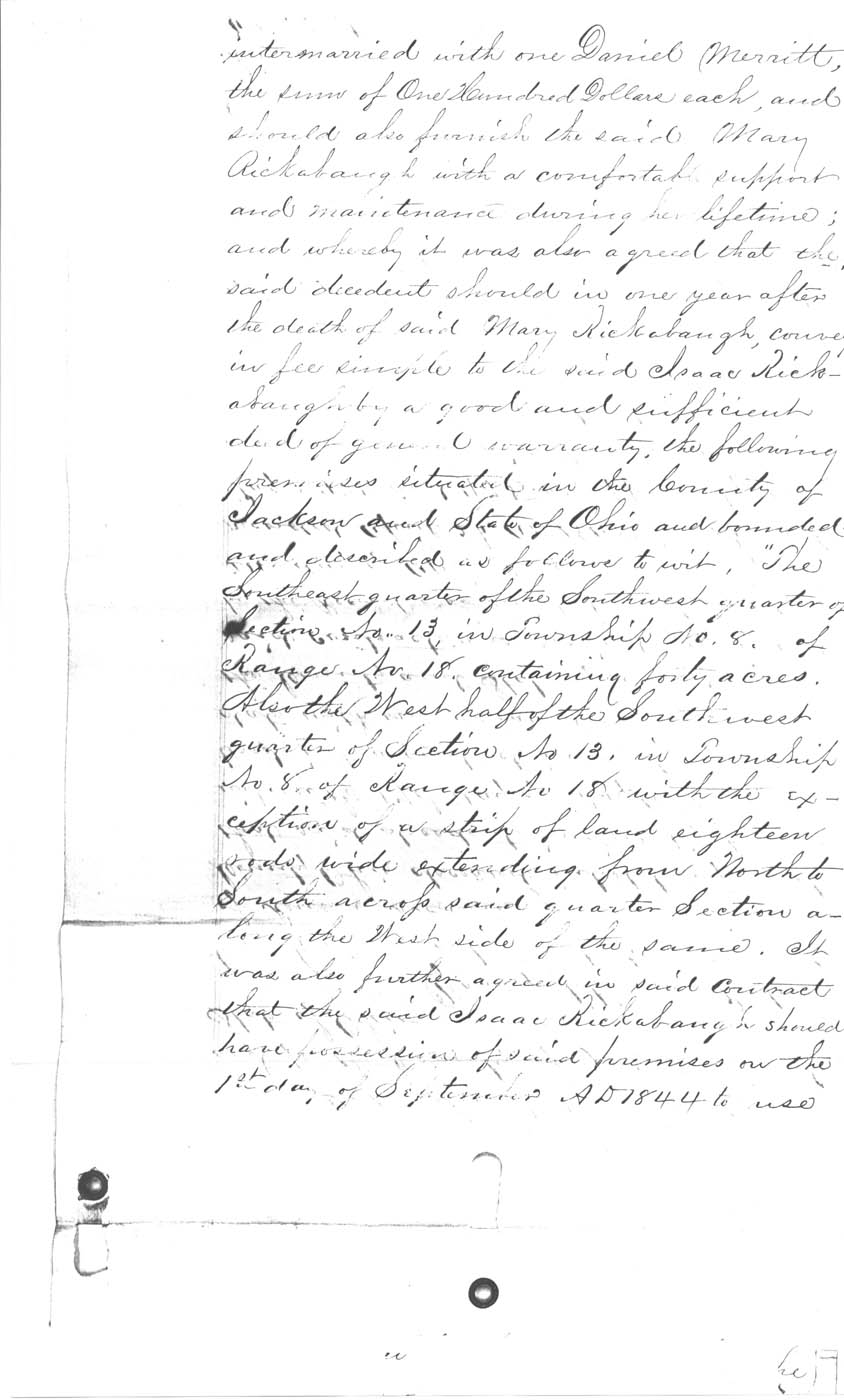 intermarried with one Daniel Merritt,
the sum of One Hundred Dollars each, and
should also furnish the said Mary
Rickabaugh with a comfortabl support
and maintenance during her lifetime;
and whereby it was also agreed that the
said decedent should in one year after
the death of said Mary Rickabaugh, convey
in fee simple to the said Isaac Rick-
abaugh by a good and sufficient
deed of general warranty, the following
premises situated in the County of
Jackson and State of Ohio and bounded
and described as follows to wit, "The
Southeast quarter of the Southwest quarter of
Section No. 13, in Township No. 8. of
Range No. 18. containing forty acres.
Also the West half of the Southwest
quarter of Section No 13. in Township
No. 8. of Range No 18 with the ex-
ception of a strip of land eighteen
rods wide extending from North to
South across said quarter Section a-
long the West side of the same. It
was also further agreed in said Contract
that the said Isaac Rickabaugh should
have possession of said premises on the
1st day of September AD 1844 to use